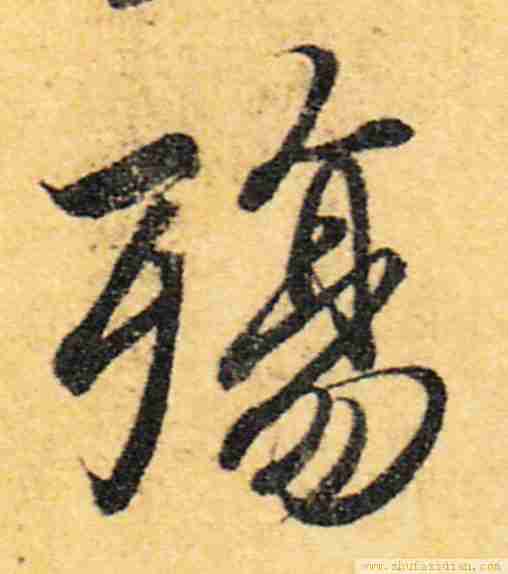 殤
www.shufazidian.com